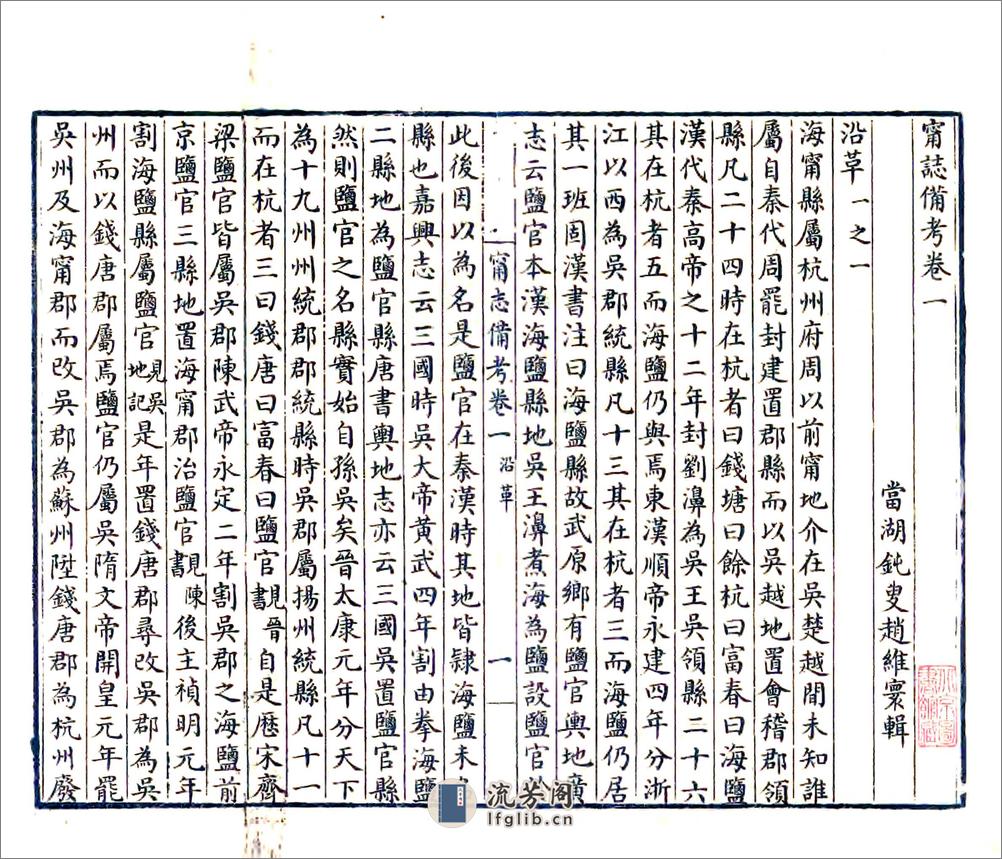 甯誌備考卷一
當湖鈍叟趙維寰輯
沿革一之一
海甯縣屬杭州府周以前甯地介在吳楚越閒未知誰
屬自秦代周罷封建置郡縣而以吳越地置會稽郡領
縣凡二十四時在杭者曰錢塘曰餘杭曰富春曰海鹽
漢代秦高帝之十二年封劉濞為吳王吳領縣二十六
其在杭者五而海鹽仍與焉東漢順帝永建四年分浙
江以西為吳郡統縣凡十三其在杭者三而海鹽仍居
其一班固漢書注曰海鹽縣故武原鄉有鹽官輿地廣
志云鹽官本漢海鹽縣地吳王濞煮海為鹽設鹽官於
甯志備考卷一 沿革 一
此後因以為名是鹽官在秦漢時其地皆隸海鹽未
縣也嘉興志云三國時吳大帝黃武四年割由拳海鹽
二縣地為鹽官縣唐書輿地志亦云三國吳置鹽官縣
然則鹽官之名縣實始自孫吳矣晉太康元年分天下
為十九州州統郡郡統縣時吳郡屬揚州統縣凡十一
而在杭者三曰錢唐曰富春曰鹽官見晉書自是歷宋齊
梁鹽官皆屬吳郡陳武帝永定二年割吳郡之海鹽前
京鹽官三縣地置海甯郡治鹽官見陳書後主禎明元年
割海鹽縣屬鹽官見吳地記是年置錢唐郡尋改吳郡為吳
州而以錢唐郡屬焉鹽官仍屬吳隋文帝開皇元年罷
吳州及海甯郡而改吳郡為蘇州陞錢唐郡為杭州廢
流芳阁
lfglib.cn